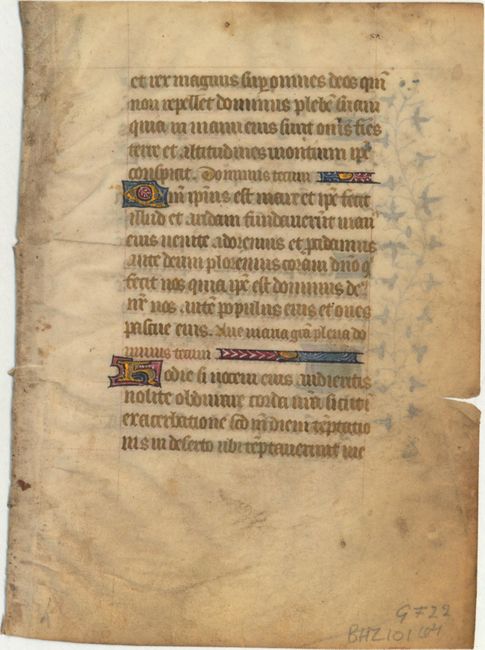 et rex magnus sup omnes deos qm̄
non repellet dominus plebē suam
quia in manu eius sunt om̄s fies
terre et altitudines montium ip̄e
conspicit. Dominus tecum
Qm̄ ipsius est mare et ip̄e fecit
illud et aridam fundaverūt man
eius venite adoremus et p̄cidamus
ante deum ploremus coram dn̄o q
fecit nos quia ip̄e est dominus de
nr̄ nos autē populus eius et oves
pascue eius. Aue maria grā plena do
minus tecum
Hodie si vocem eius audieritis
nolite obdurare corda vr̄a sicut ī
exacerbatione scd̄m diem tēptatio
nis in deserto ubi tēptaverunt me
G F22
BHZ101